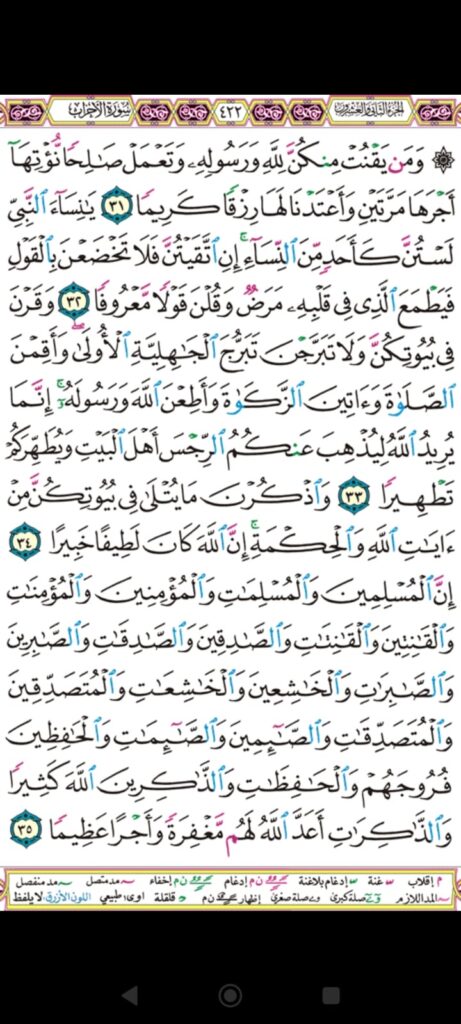 الجزء الثاني والعشرون ٤٢٢ سورة الأحزاب
۞ وَمَن يَقْنُتْ مِنكُنَّ لِلَّهِ وَرَسُولِهِۦ وَتَعْمَلْ صَٰلِحًا نُّؤْتِهَآ
أَجْرَهَا مَرَّتَيْنِ وَأَعْتَدْنَا لَهَا رِزْقًا كَرِيمًا ٣١ يَٰنِسَآءَ ٱلنَّبِيِّ
لَسْتُنَّ كَأَحَدٍ مِّنَ ٱلنِّسَآءِ ۚ إِنِ ٱتَّقَيْتُنَّ فَلَا تَخْضَعْنَ بِٱلْقَوْلِ
فَيَطْمَعَ ٱلَّذِى فِى قَلْبِهِۦ مَرَضٌ وَقُلْنَ قَوْلًا مَّعْرُوفًا ٣٢ وَقَرْنَ
فِى بُيُوتِكُنَّ وَلَا تَبَرَّجْنَ تَبَرُّجَ ٱلْجَٰهِلِيَّةِ ٱلْأُولَىٰ وَأَقِمْنَ
ٱلصَّلَوٰةَ وَءَاتِينَ ٱلزَّكَوٰةَ وَأَطِعْنَ ٱللَّهَ وَرَسُولَهُۥٓ ۚ إِنَّمَا
يُرِيدُ ٱللَّهُ لِيُذْهِبَ عَنكُمُ ٱلرِّجْسَ أَهْلَ ٱلْبَيْتِ وَيُطَهِّرَكُمْ
تَطْهِيرًا ٣٣ وَٱذْكُرْنَ مَا يُتْلَىٰ فِى بُيُوتِكُنَّ مِنْ
ءَايَٰتِ ٱللَّهِ وَٱلْحِكْمَةِ ۚ إِنَّ ٱللَّهَ كَانَ لَطِيفًا خَبِيرًا ٣٤
إِنَّ ٱلْمُسْلِمِينَ وَٱلْمُسْلِمَٰتِ وَٱلْمُؤْمِنِينَ وَٱلْمُؤْمِنَٰتِ
وَٱلْقَٰنِتِينَ وَٱلْقَٰنِتَٰتِ وَٱلصَّٰدِقِينَ وَٱلصَّٰدِقَٰتِ وَٱلصَّٰبِرِينَ
وَٱلصَّٰبِرَٰتِ وَٱلْخَٰشِعِينَ وَٱلْخَٰشِعَٰتِ وَٱلْمُتَصَدِّقِينَ
وَٱلْمُتَصَدِّقَٰتِ وَٱلصَّٰٓئِمِينَ وَٱلصَّٰٓئِمَٰتِ وَٱلْحَٰفِظِينَ
فُرُوجَهُمْ وَٱلْحَٰفِظَٰتِ وَٱلذَّٰكِرِينَ ٱللَّهَ كَثِيرًا
وَٱلذَّٰكِرَٰتِ أَعَدَّ ٱللَّهُ لَهُم مَّغْفِرَةً وَأَجْرًا عَظِيمًا ٣٥
م إقلاب غنة إدغام بلاغنة ن م إدغام ن م إخفاء مد متصل مد منفصل
المد اللازم صلة كبرى صلة صغرى إظهار ن م قلقلة اوى طبيعي اللون الأزرق لا يلفظ